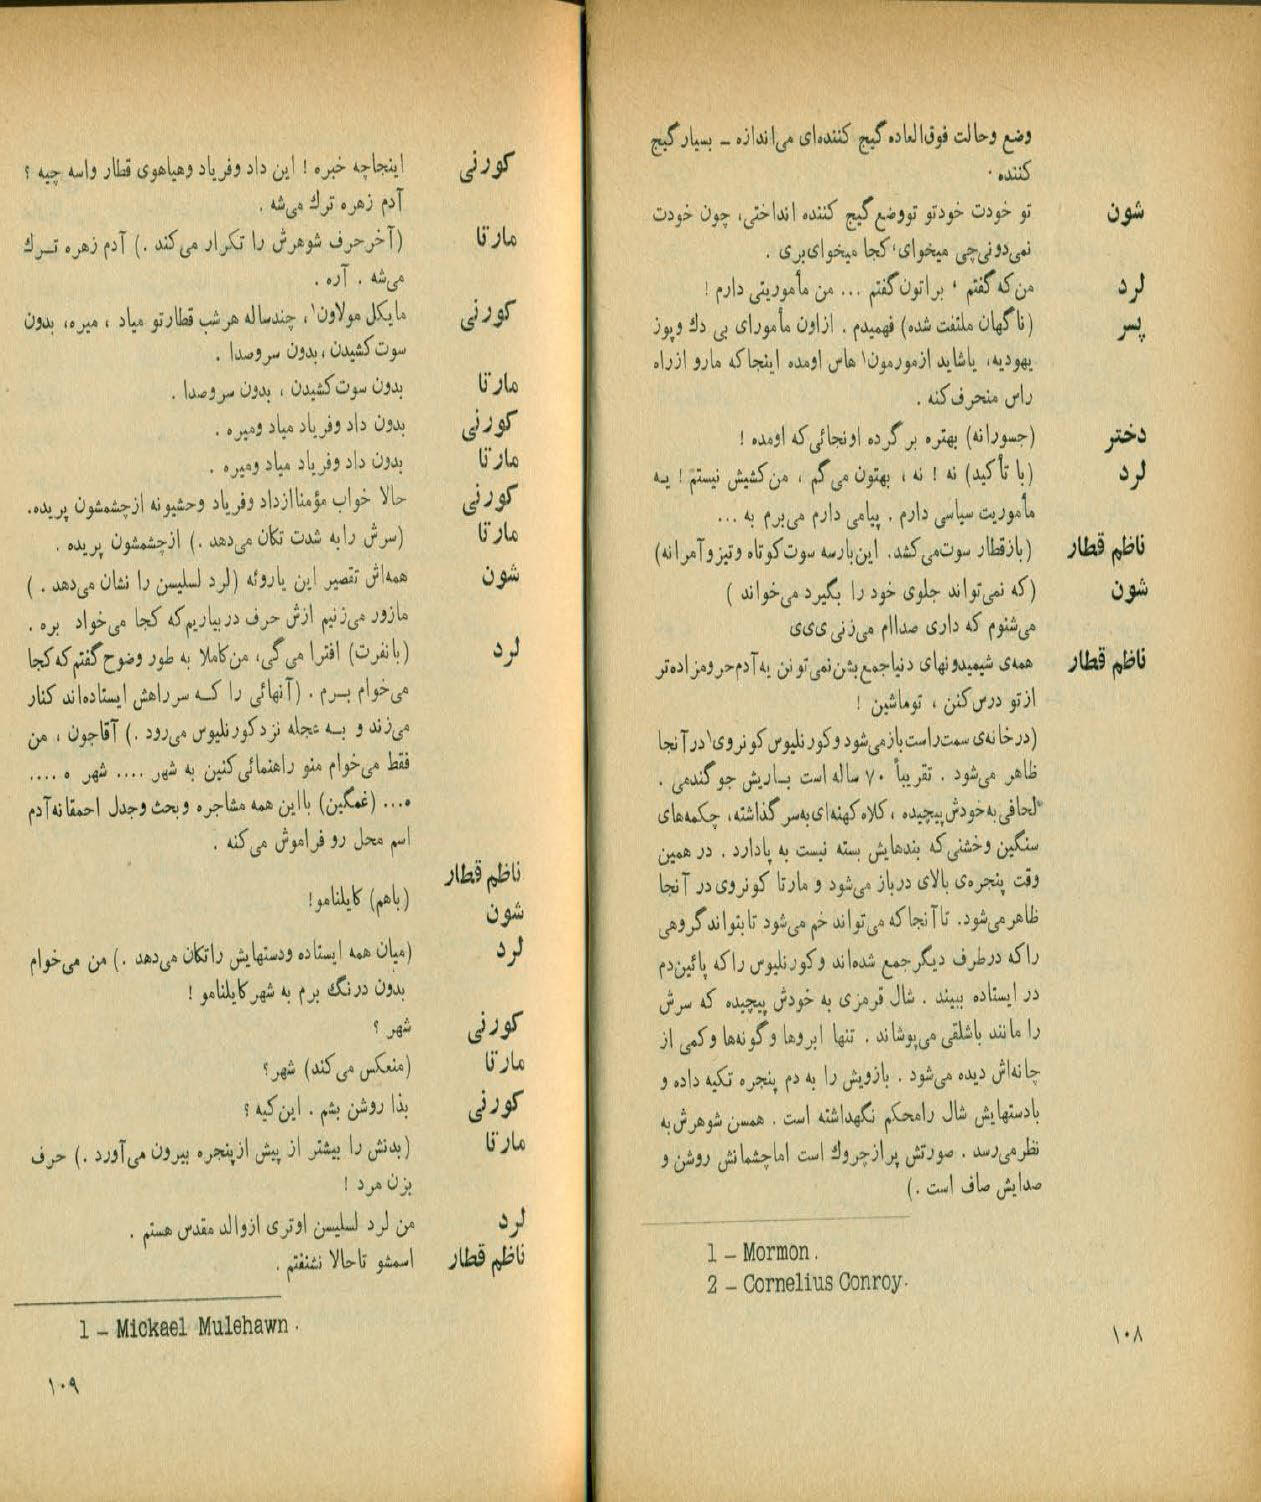 وضع وحالت فوق‌العاده گیج کننده‌ای می‌اندازه ـ بسیار گیج
کننده .
شون تو خودت خودتو تووضع گیج کننده انداختی، چون خودت
نمی‌دونی‌چی میخوای، کجا میخوای‌بری .
لرد من‌که گفتم ، براتون گفتم ... من مأموریتی دارم !
پسر (ناگهان ملتفت شده) فهمیدم . ازاون مأمورای بی دك وپوز
یهودیه، یاشاید ازمورمون۱ هاس اومده اینجاکه مارو ازراه
راس منحرف‌کنه .
دختر (جسورانه) بهتره برگرده اونجائی‌که اومده !
لرد (با تأکید) نه ! نه ، بهتون می‌گم ، من‌کشیش نیستم ! یه
مأموریت سیاسی دارم . پیامی دارم می‌برم به ...
ناظم قطار (بازقطار سوت‌می‌کشد. این‌بارسه سوت‌کوتاه وتیزوآمرانه)
شون (که نمی‌تواند جلوی خود را بگیرد می‌خواند )
می‌شنوم که داری صداام می‌زنی‌ی‌ی‌ی
ناظم قطار همه‌ی شیمیدونهای دنیاجمع بشن‌نمی‌تونن یه‌آدم‌حرومزاده‌تر
ازتو درس‌کنن ، توماشین !
(درخانه‌ی سمت‌راست‌بازمی‌شود وکورنلیوس کونروی۱ درآنجا
ظاهر می‌شود . تقریباً ۷۰ ساله است بـاریش جوگندمی .
لحافی به‌خودش‌پیچیده ، کلاه کهنه‌ای‌به‌سرگذاشته، چکمه‌های
سنگین وخشنی‌که بندهایش بسته نیست به پادارد . در همین
وقت پنجره‌ی بالای درباز می‌شود و مارتا کونروی در آنجا
ظاهرمی‌شود. تاآنجاکه می‌تواند خم می‌شود تابتواندگروهی
راکه درطرف دیگرجمع شده‌اند وکورنلیوس راکه پائین‌دم
در ایستاده ببیند . شال قرمزی به خودش پیچیده که سرش
را مانند باشلقی می‌پوشاند . تنها ابروها وگونه‌ها وکمی از
چانه‌اش دیده می‌شود . بازویش را به دم پنجره تکیه داده و
بادستهایش شال رامحکم نگهداشته است . همسن شوهرش‌به
نظرمی‌رسد . صورتش پرازچروك است اماچشمانش روشن و
صدایش صاف است .)
1 – Mormon .
2 – Cornelius Conroy.
۱۰۸
کورنی اینجاچه خبره ! این داد وفریاد وهیاهوی قطار واسه چیه ؟
آدم زهره ترك می‌شه .
مارتا (آخرحرف شوهرش را تکرار می‌کند .) آدم زهره تــرك
می‌شه . آره .
کورنی مایکل مولاون۱، چندساله هرشب قطارتو میاد ، میره، بدون
سوت کشیدن ، بدون سروصدا .
مارتا بدون سوت‌کشیدن ، بدون سروصدا .
کورنی بدون داد وفریاد میاد ومیره .
مارتا بدون داد وفریاد میاد ومیره .
کورنی حالا خواب مؤمناازداد وفریاد وحشیونه ازچشمشون پریده.
مارتا (سرش رابه شدت تکان می‌دهد .) ازچشمشون پریده .
شون همه‌اش تقصیر این یاروئه (لرد لسلیسن را نشان می‌دهد . )
مازور می‌زنیم ازش حرف دربیاریم‌که کجا می‌خواد بره .
لرد (بانفرت) افترا می‌گی، من‌کاملا به طور وضوح گفتم‌که‌کجا
می‌خوام بــرم . (آنهائی را کــه سرراهش ایستاده‌اند کنار
می‌زند و بــه عجله نزدکورنلیوس می‌رود .) آقاجون ، من
فقط می‌خوام منو راهنمائی‌کنین به شهر .... شهر ه ....
ه... (غمگین) بااین همه مشاجره وبحث وجدل احمقانه‌آدم
اسم محل رو فراموش می‌کنه .
ناظم قطار
شون (باهم) کایلنامو!
لرد (میان همه ایستاده ودستهایش راتکان می‌دهد .) من می‌خوام
بدون درنگ برم به شهرکایلنامو !
کورنی شهر ؟
مارتا (منعکس می‌کند) شهر؟
کورنی بذا روشن بشم . این‌کیه ؟
مارتا (بدنش را بیشتر از پیش ازپنجره بیرون می‌آورد .) حرف
بزن مرد !
لرد من لرد لسلیسن اوتری ازوالد مقدس هستم .
ناظم قطار اسمشو تاحالا نشنفتم .
1 – Mickael Mulehawn .
۱۰۹